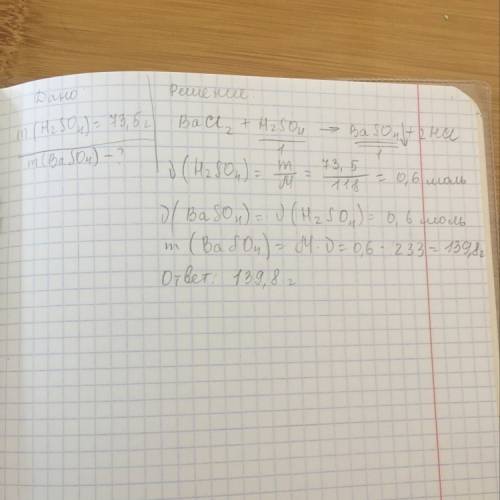 Дано
m(H₂SO₄) = 73,5 г
m(BaSO₄) - ?
Решение
BaCl₂ + H₂SO₄ → BaSO₄↓ + 2HCl
1 1
ν(H₂SO₄) = m/M = 73,5/118 = 0,6 моль
ν(BaSO₄) = ν(H₂SO₄) = 0,6 моль
m(BaSO₄) = M · ν = 0,6 · 233 = 139,8 г
Ответ: 139,8 г